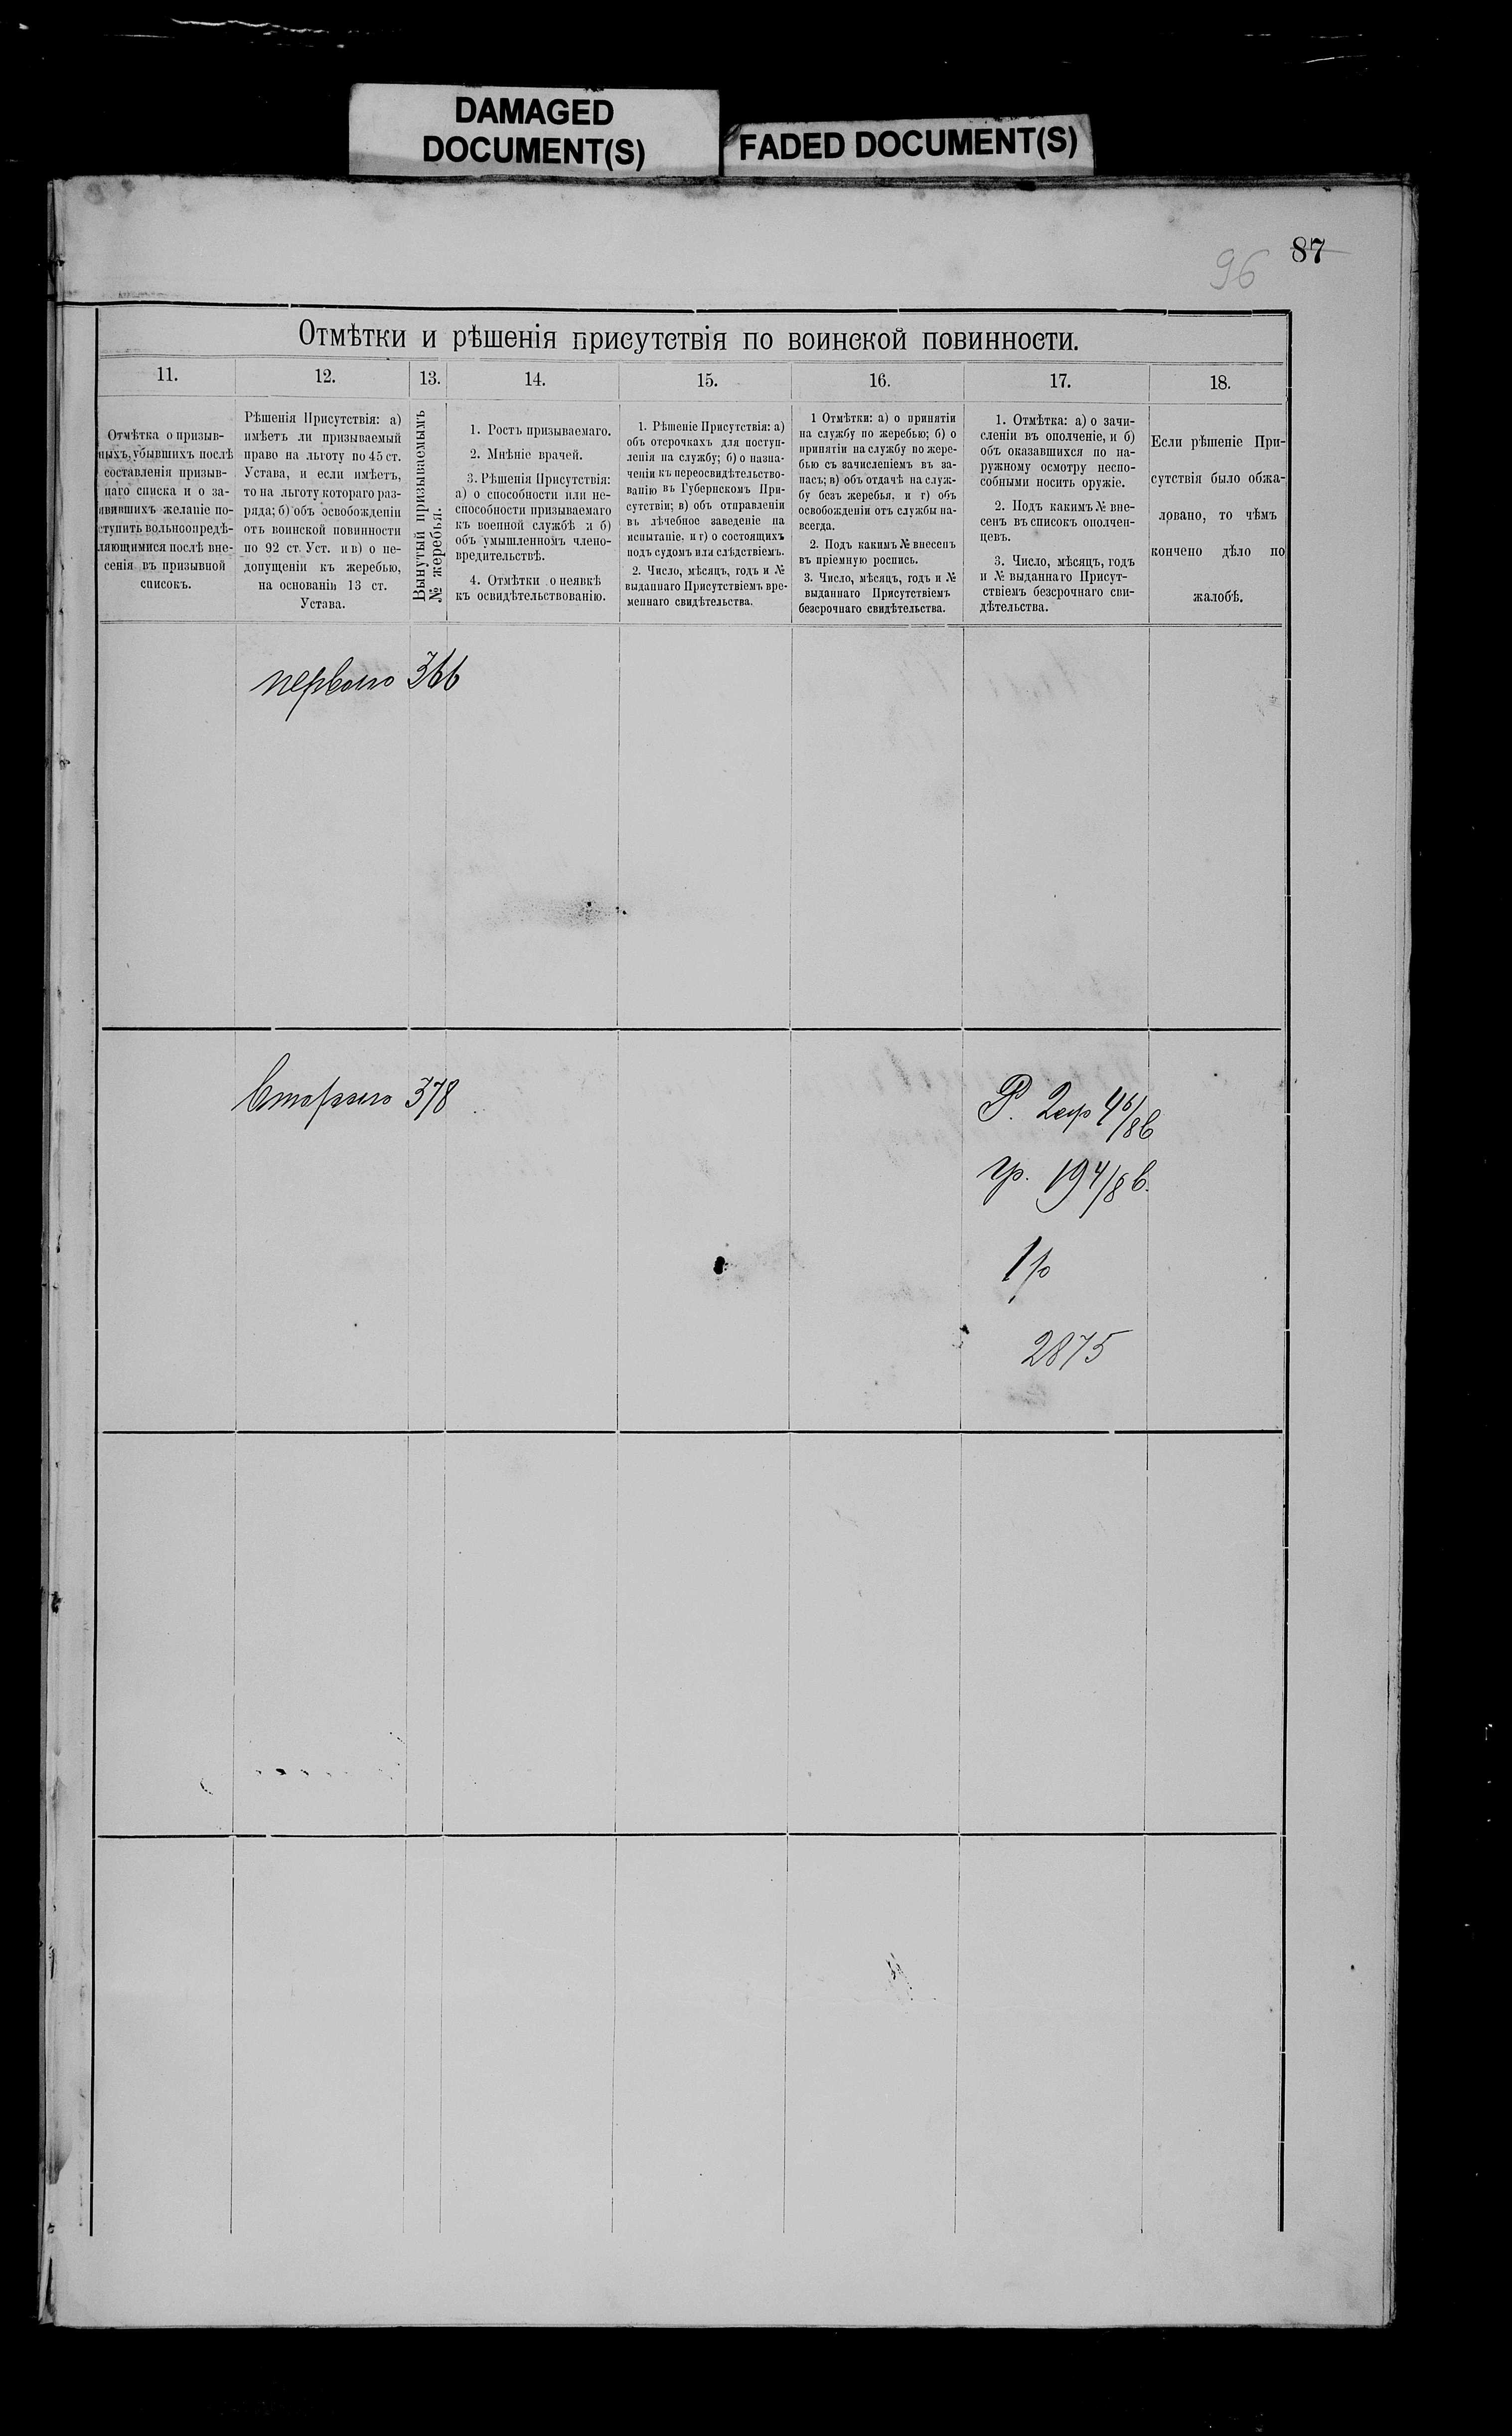 DAMAGED
DOCUMENT(S)
FADED DOCUMENT(S)
87
96
Отмѣтки и рѣшенія присутствія по воинской повинности.
11.
12.
13.
14.
15.
16.
17.
18.
Отмѣтка о призыв-
ныхъ, убывшихъ послѣ
составленія призыв-
наго списка и о за-
явившихъ желаніе по-
ступить вольноопредѣ-
ляющимися послѣ вне-
сенія въ призывной
списокъ.
Рѣшенія Присутствія: а)
имѣетъ ли призываемый
право на льготу по 45 ст.
Устава, и если имѣетъ,
то на льготу котораго раз-
ряда; б) объ освобожденіи
отъ воинской повинности
по 92 ст. Уст. и в) о не-
допущеніи къ жеребью,
на основаніи 13 ст.
Устава.
Вынутый призываемымъ
№ жеребья.
1. Ростъ призываемаго.
2. Мнѣніе врачей.
3. Рѣшенія Присутствія:
а) о способности или не-
способности призываемаго
къ военной службѣ и б)
объ умышленномъ члено-
вредительствѣ.
4. Отмѣтки о неявкѣ
къ освидѣтельствованію.
1. Рѣшеніе Присутствія: а)
объ отсрочкахъ для поступ-
ленія на службу; б) о назна-
ченіи къ переосвидѣтельство-
ванію въ Губернскомъ При-
сутствіи; в) объ отправленіи
въ лѣчебное заведеніе на
испытаніе, и г) о состоящихъ
подъ судомъ или слѣдствіемъ.
2. Число, мѣсяцъ, годъ и №
выданнаго Присутствіемъ вре-
меннаго свидѣтельства.
1 Отмѣтки: а) о принятіи
на службу по жеребью; б) о
принятіи на службу по жере-
бью съ зачисленіемъ въ за-
пасъ; в) объ отдачѣ на служ-
бу безъ жеребья, и г) объ
освобожденіи отъ службы на-
всегда.
2. Подъ какимъ № внесенъ
въ пріемную роспись.
3. Число, мѣсяцъ, годъ и №
выданнаго Присутствіемъ
безсрочнаго свидѣтельства.
1. Отмѣтка: а) о зачи-
сленіи въ ополченіе, и б)
объ оказавшихся по на-
ружному осмотру неспо-
собными носить оружіе.
2. Подъ какимъ № вне-
сенъ въ списокъ ополчен-
цевъ.
3. Число, мѣсяцъ, годъ
и № выданнаго Присут-
ствіемъ безсрочнаго сви-
дѣтельства.
Если рѣшеніе При-
сутствія было обжа-
ловано, то чѣмъ
кончено дѣло по
жалобѣ.
перваго 366
втораго 378
Р. 2
гр. 19 4/8 в.
1 р
2875